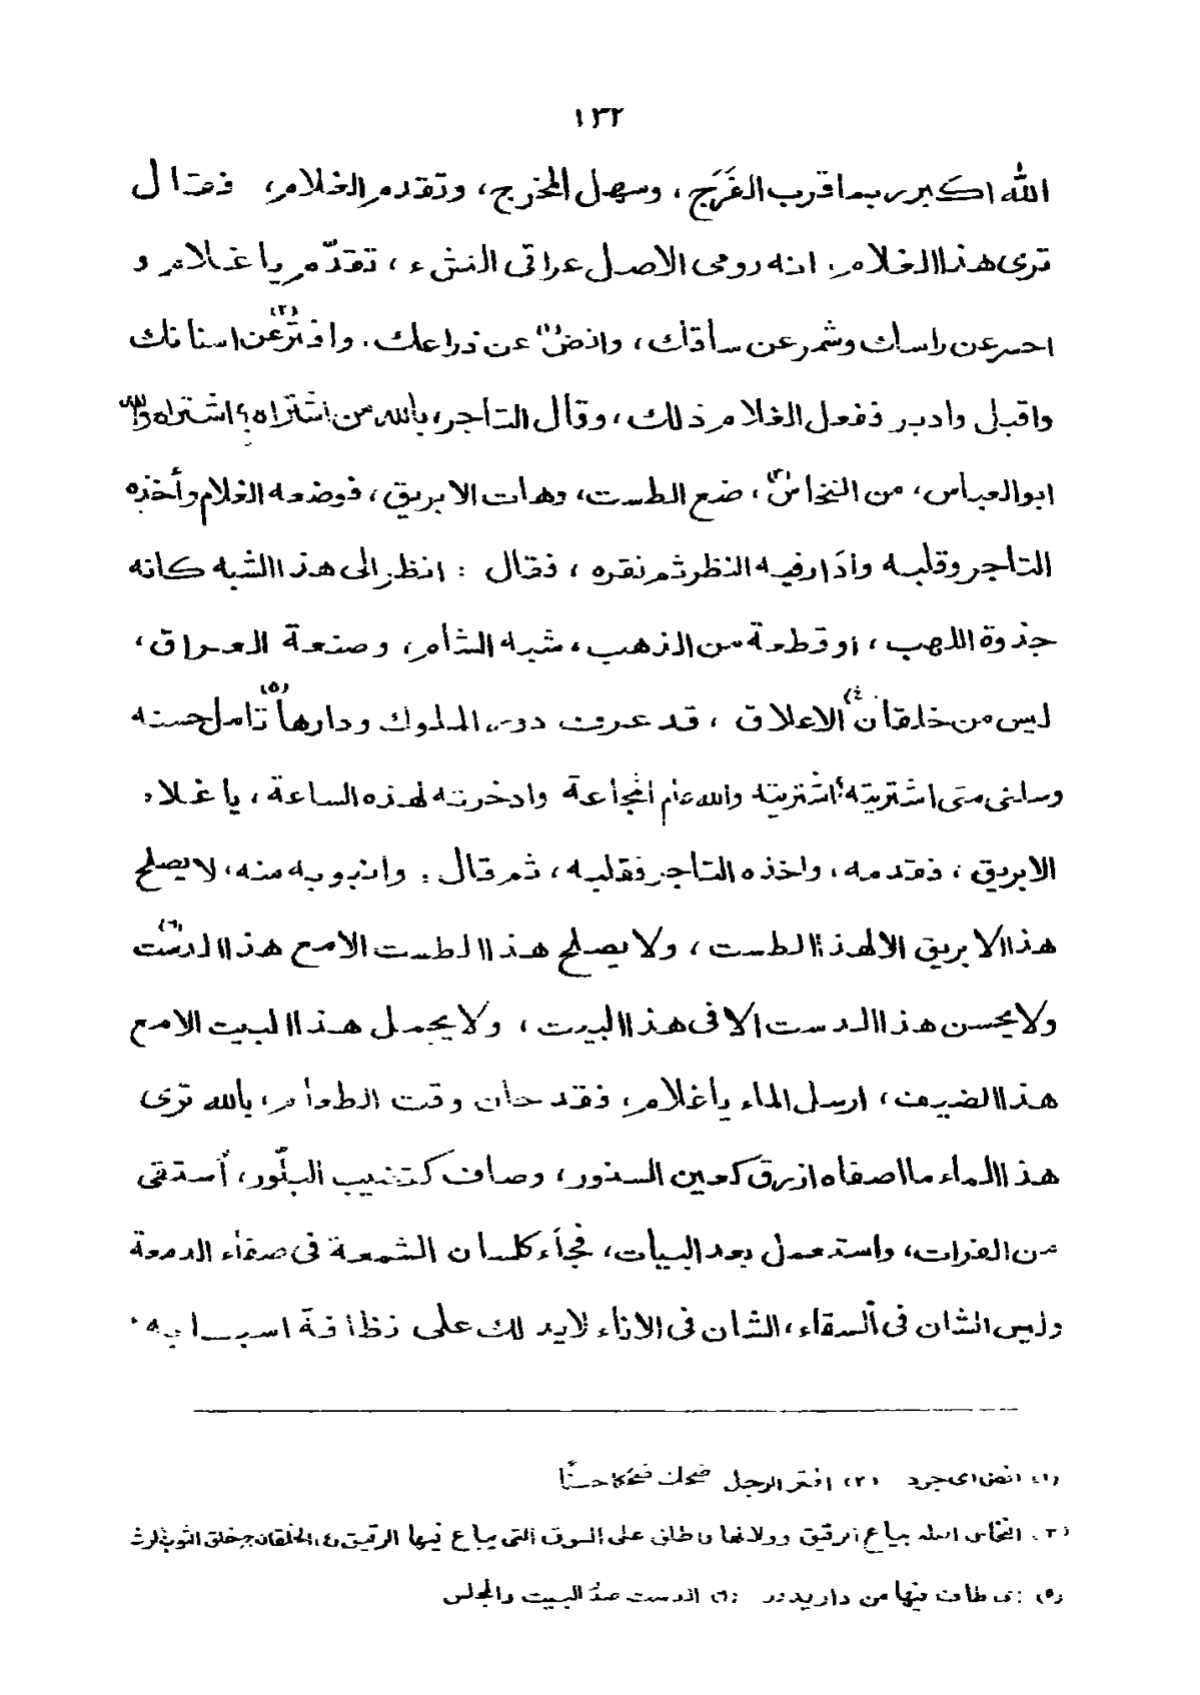 ١٣٢
الله اكبر، بما قرب الفَرَج، وسهل المخرج، وتقدم الغلام، فقال
ترى هذا الغلام، انه رومى الاصل عراقى النشء، تقدّم يا غلام و
احسر عن راسك وشمر عن ساقك، وانض(١) عن ذراعك، وافترّ(٢) عن اسنانك
واقبل وادبر ففعل الغلام ذلك، وقال التاجر، بالله من اشتراه؟ اشتراه والله
ابو العباس، من النخاس(٣)، ضع الطست، وهات الابريق، فوضعه الغلام وأخذه
التاجر وقلبه وأدار فيه النظر ثم نقره، فقال : انظر الى هذا الشبه كانه
جذوة اللهب، او قطعة من الذهب، شبه الشام، وصنعة العراق،
ليس من خلقان(٤) الاعلاق، قد عرف دور الملوك ودارها(٥) تامل حسنه
وسلنى متى اشتريته؟ اشتريته والله عام المجاعة وادخرته لهذه الساعة، يا غلام
الابريق، فقدمه، واخذه التاجر فقلبه، ثم قال : وانبوبه منه، لا يصلح
هذا الابريق الا لهذا الطست، ولا يصلح هذا الطست الا مع هذا الدست(٦)
ولا يحسن هذا الدست الا فى هذا البيت، ولا يجمل هذا البيت الا مع
هذا الضيف، ارسل الماء يا غلام، فقد حان وقت الطعام، بالله ترى
هذا الماء ما اصفاه ازرق كعين السنور، وصاف كقضيب البلّور، أستقى
من الفرات، واستعمل بعد البيات، فجاء كلسان الشمعة فى صفاء الدمعة
وليس الشان فى السقاء، الشان فى الاناء لا يدلك على نظافة اسبابه،
(١) انض اى جرد (٢) افتر الرجل ضحك ضحكا حسنًا
(٣) النخاس اصله بياع الرقيق ودلالها واطلق على السوق التى يباع فيها الرقيق (٤) الخلقان ج خلق الثوب الرث
(٥) اى طاف فيها من دار يدور (٦) الدست صدر البيت والمجلس